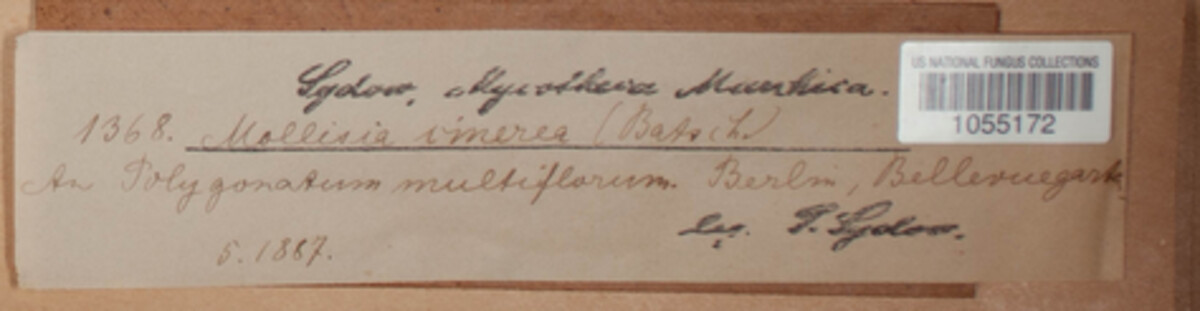 Sydow, Mycotheca Marchica.
US NATIONAL FUNGUS COLLECTIONS
1055172
1368. Mollisia cinerea (Batsch.)
An Polygonatum multiflorum. Berlin, Bellevuegart
5. 1887.
Leg. P. Sydow.